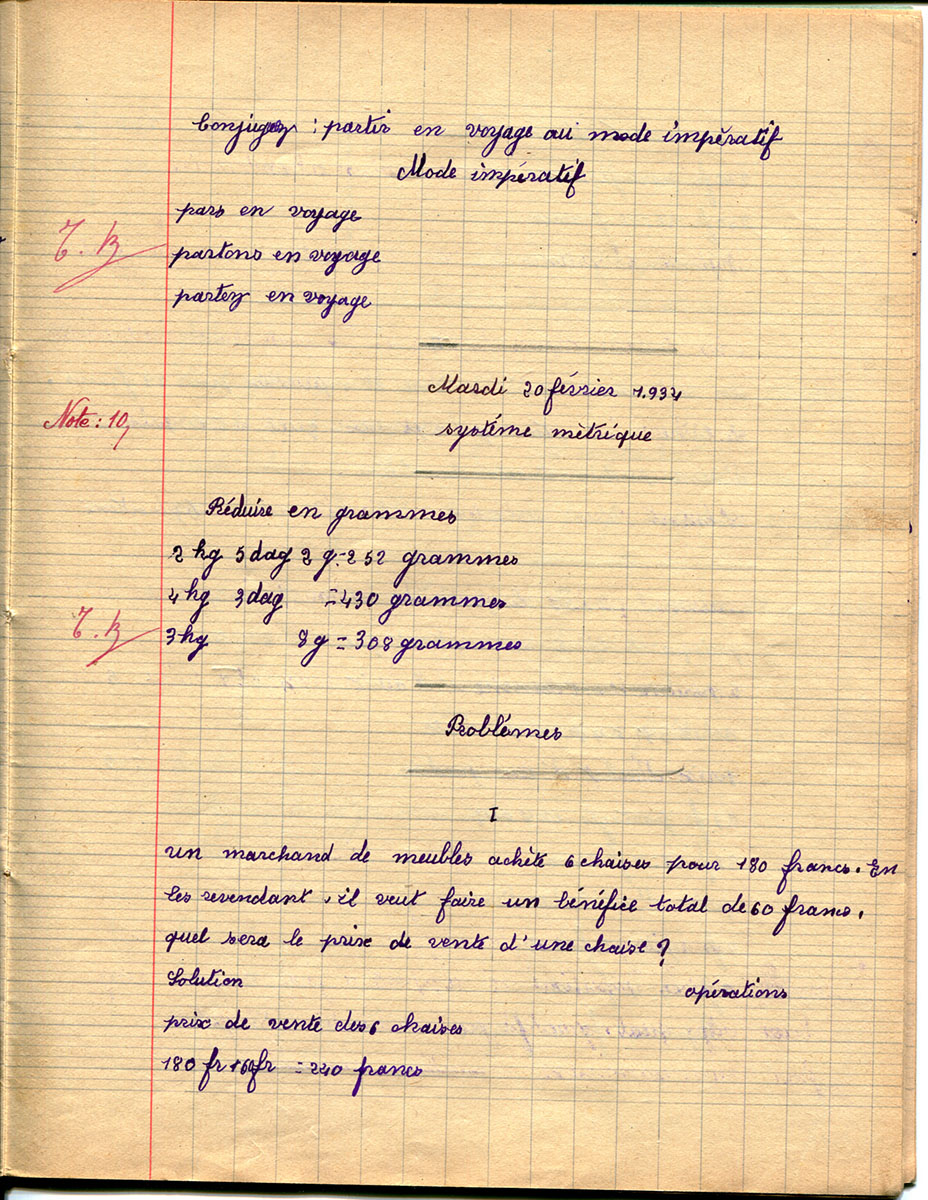 Conjuguez : partir en voyage au mode impératif
Mode impératif
pars en voyage
T. B
partons en voyage
partez en voyage
Mardi 20 février 1.934
Note : 10
système métrique
Réduire en grammes
2 hg 5 dag 2 g = 252 grammes
4 hg 3 dag = 430 grammes
T. B
3 hg 8 g = 308 grammes
Problèmes
I
un marchand de meubles achète 6 chaises pour 180 francs. En
les revendant, il veut faire un bénéfice total de 60 francs.
quel sera le prix de vente d'une chaise ?
Solution opérations
prix de vente des 6 chaises
180 fr + 60 fr = 240 francs